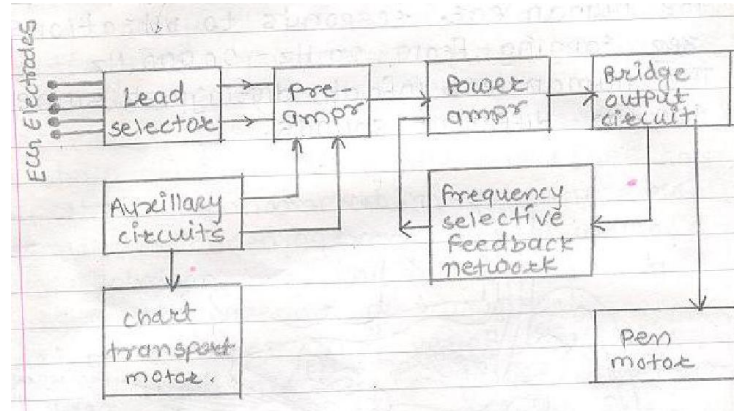 ECG Electrodes
Lead
selector
Pre-
ampr
Power
ampr
Bridge
output
circuit.
Auxillary
circuits
Frequency
selective
feedback
network
chart
transport
motor.
Pen
motor